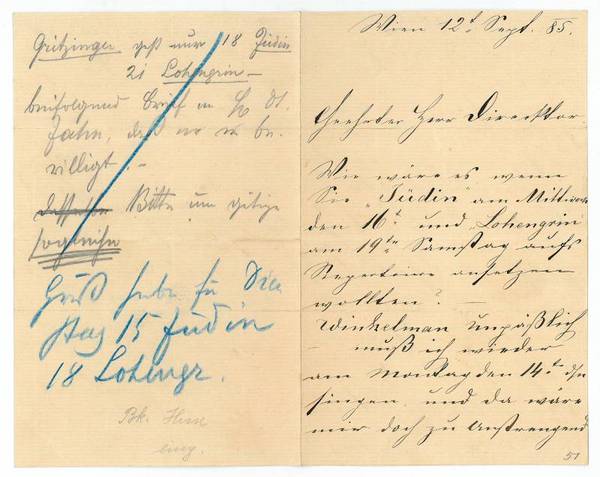 Gritzinger geht nur 18 Jüdin
21 Lohengrin –
beifolgend Brief an
Jahn, daß er be-
willigt. –
Bitte um gütige
Dien
stag 15 Jüdin
18 Lohengr.
Wien 12t. Sept. 85.
Geehrter Herr Direcktor
Wie wäre es wenn
Sie „Jüdin“ am Mittwoch
den 16t und „Lohengrin“
am 19te Samstag aufs
Repertoire ansetzen
wollten? –
Winkelman unpäßlich
– muß ich wieder
am Montag den 14t
singen, und da wäre
mir doch zu anstrengend
51